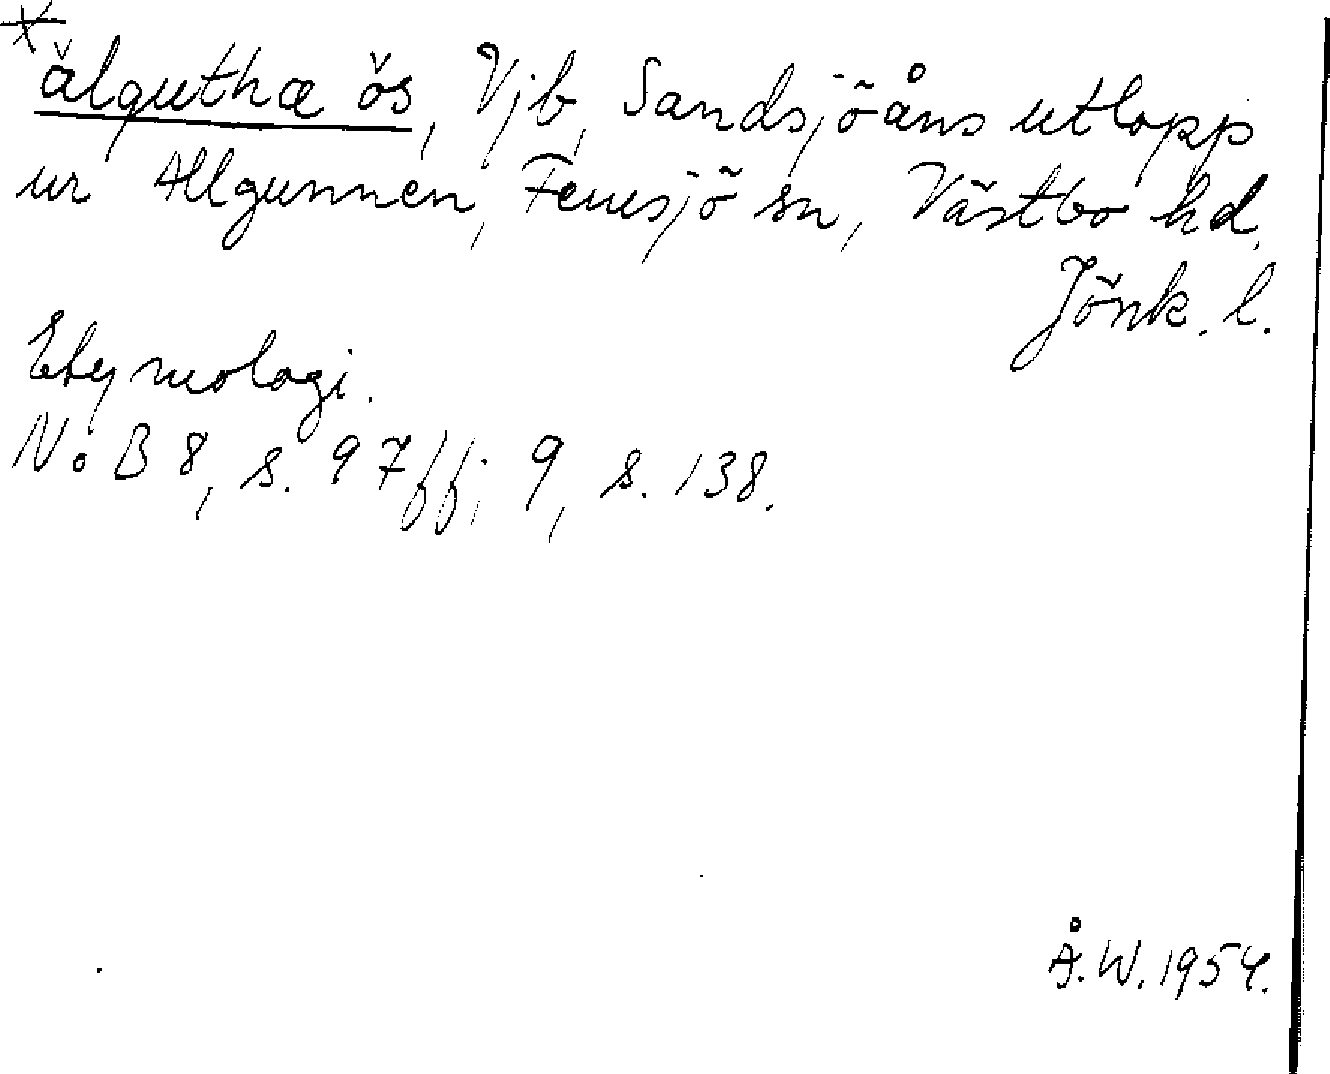 × älguthæ ös, Vjb, Sandsjöåns utlopp
ur Allgunnen, Femsjö sn, Västbo hd,
Jönk. l.
Etymologi.
NoB 8, s. 97ff; 9, s. 138.
Å.W. 1954.